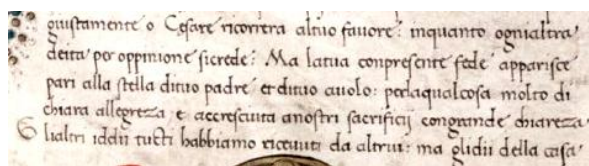 giustamente o Cesare ricorrera altuo fauore: inquanto ognialtra
deita per oppinione sicrede: Ma latua conpresente fede apparisce
pari alla stella dituo padre et dituo auolo: perlaqualcosa molto di
chiara allegreza e accresciuta anostri sacrificij congrande chiareza
Glialtri iddij tucti habbiamo riceuuti da altrui: ma glidij della casa